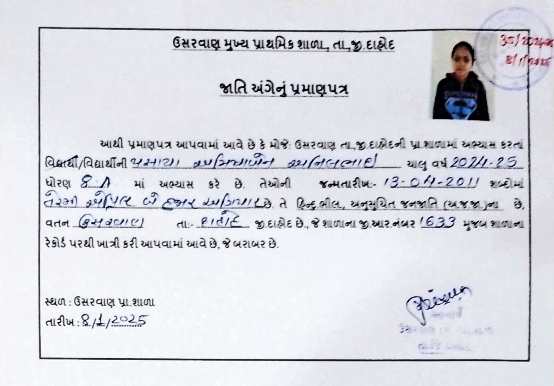 ઉસરવાણ મુખ્ય પ્રાથમિક શાળા, તા.જી.દાહોદ
35/2024-25
8/1/2025
જાતિ અંગેનું પ્રમાણપત્ર
આથી પ્રમાણપત્ર આપવામાં આવે છે કે મોજે ઉસરવાણ તા.જી.દાહોદની પ્રા.શાળામાં અભ્યાસ કરતાં
વિદ્યાર્થી/વિદ્યાર્થીની ચાલુ વર્ષ 2024-25
ધોરણ 8 A માં અભ્યાસ કરે છે. તેઓની જન્મતારીખ:- 13-04-2011 શબ્દોમાં
તેરમી એપ્રિલ બે હજાર અગિયાર છે. તે હિન્દુ ભીલ, અનુસુચિત જનજાતિ (અ.જ.જા)ના છે,
વતન ઉસરવાણ તા:- દાહોદ જી.દાહોદ છે., જે શાળાના જી.આર નંબર 1633 મુજબ શાળાના
રેકોર્ડ પરથી ખાત્રી કરી આપવામાં આવે છે, જે બરાબર છે.
સ્થળ : ઉસરવાણ પ્રા.શાળા
તારીખ : 8/1/2025